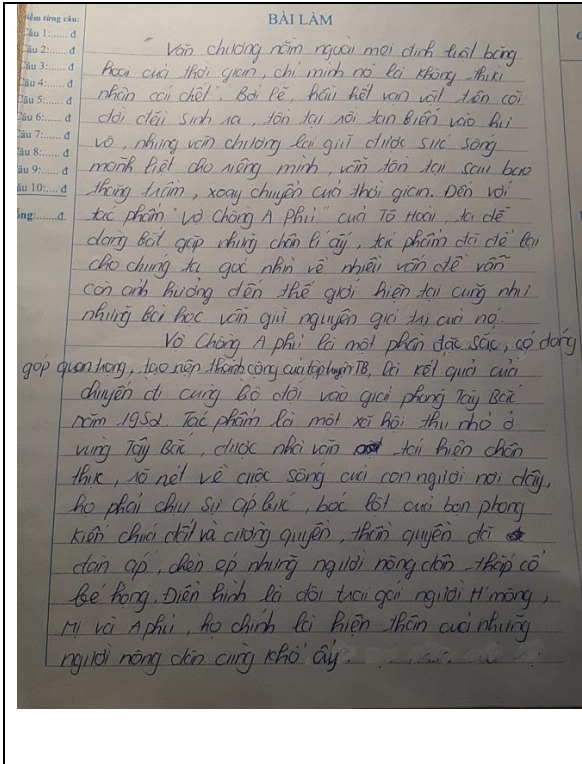 BÀI LÀM
Điểm từng câu:
Câu 1:...... đ
Câu 2:...... đ
Câu 3:...... đ
Câu 4:...... đ
Câu 5:...... đ
Câu 6:...... đ
Câu 7:...... đ
Câu 8:...... đ
Câu 9:...... đ
Câu 10:.... đ
" Văn chương nằm ngoài mọi định luật băng
hoại của thời gian, chỉ mình nó là không thừa
nhận cái chết". Bởi lẽ, hầu hết vạn vật trên cõi
đời đều sinh ra, tồn tại rồi tan biến vào hư
vô, nhưng văn chương lại giữ được sức sống
mãnh liệt cho riêng mình, vẫn tồn tại sau bao
thăng trầm, xoay chuyển của thời gian. Đến với
tác phẩm "Vợ chồng A Phủ" của Tô Hoài, ta dễ
dàng bắt gặp những chân lí ấy, tác phẩm đã để lại
cho chúng ta góc nhìn về nhiều vấn đề vẫn
còn ảnh hưởng đến thế giới hiện tại cũng như
những bài học vẫn giữ nguyên giá trị của nó.
Vợ Chồng A Phủ là một phần đặc sắc, có đóng
góp quan trọng, tạo nên thành công của tập truyện TB, là kết quả của
chuyến đi cùng bộ đội vào giải phóng Tây Bắc
năm 1952. Tác phẩm là một xã hội thu nhỏ ở
vùng Tây Bắc, được nhà văn tái hiện chân
thực, rõ nét về cuộc sống của con người nơi đây,
họ phải chịu sự áp bức, bóc lột của bọn phong
kiến chúa đất và cường quyền, thần quyền đã
đàn áp, chèn ép những người nông dân thấp cổ
bé họng. Điển hình là đôi trai gái người H'mông,
Mị và A Phủ, họ chính là hiện thân của những
người nông dân cùng khổ ấy.